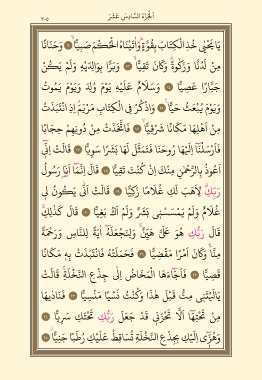 الجزء السادس عشر ٣٠٥
يَا يَحْيٰى خُذِ الْكِتَابَ بِقُوَّةٍ وَاٰتَيْنَاهُ الْحُكْمَ صَبِيًّا ۝ وَحَنَانًا
مِنْ لَدُنَّا وَزَكٰوةً وَكَانَ تَقِيًّا ۝ وَبَرًّا بِوَالِدَيْهِ وَلَمْ يَكُنْ
جَبَّارًا عَصِيًّا ۝ وَسَلَامٌ عَلَيْهِ يَوْمَ وُلِدَ وَيَوْمَ يَمُوتُ
وَيَوْمَ يُبْعَثُ حَيًّا ۝ وَاذْكُرْ فِي الْكِتَابِ مَرْيَمَ اِذِ انْتَبَذَتْ
مِنْ اَهْلِهَا مَكَانًا شَرْقِيًّا ۝ فَاتَّخَذَتْ مِنْ دُونِهِمْ حِجَابًا
فَاَرْسَلْنَا اِلَيْهَا رُوحَنَا فَتَمَثَّلَ لَهَا بَشَرًا سَوِيًّا ۝ قَالَتْ اِنِّي
اَعُوذُ بِالرَّحْمٰنِ مِنْكَ اِنْ كُنْتَ تَقِيًّا ۝ قَالَ اِنَّمَا اَنَا رَسُولُ
رَبِّكِ لِاَهَبَ لَكِ غُلَامًا زَكِيًّا ۝ قَالَتْ اَنّٰى يَكُونُ لِي
غُلَامٌ وَلَمْ يَمْسَسْنِي بَشَرٌ وَلَمْ اَكُ بَغِيًّا ۝ قَالَ كَذٰلِكِ
قَالَ رَبُّكِ هُوَ عَلَيَّ هَيِّنٌ وَلِنَجْعَلَهُ اٰيَةً لِلنَّاسِ وَرَحْمَةً
مِنَّا وَكَانَ اَمْرًا مَقْضِيًّا ۝ فَحَمَلَتْهُ فَانْتَبَذَتْ بِهِ مَكَانًا
قَصِيًّا ۝ فَاَجَاءَهَا الْمَخَاضُ اِلٰى جِذْعِ النَّخْلَةِ قَالَتْ
يَا لَيْتَنِي مِتُّ قَبْلَ هٰذَا وَكُنْتُ نَسْيًا مَنْسِيًّا ۝ فَنَادٰيهَا
مِنْ تَحْتِهَا اَلَّا تَحْزَنِي قَدْ جَعَلَ رَبُّكِ تَحْتَكِ سَرِيًّا ۝
وَهُزِّي اِلَيْكِ بِجِذْعِ النَّخْلَةِ تُسَاقِطْ عَلَيْكِ رُطَبًا جَنِيًّا ۝